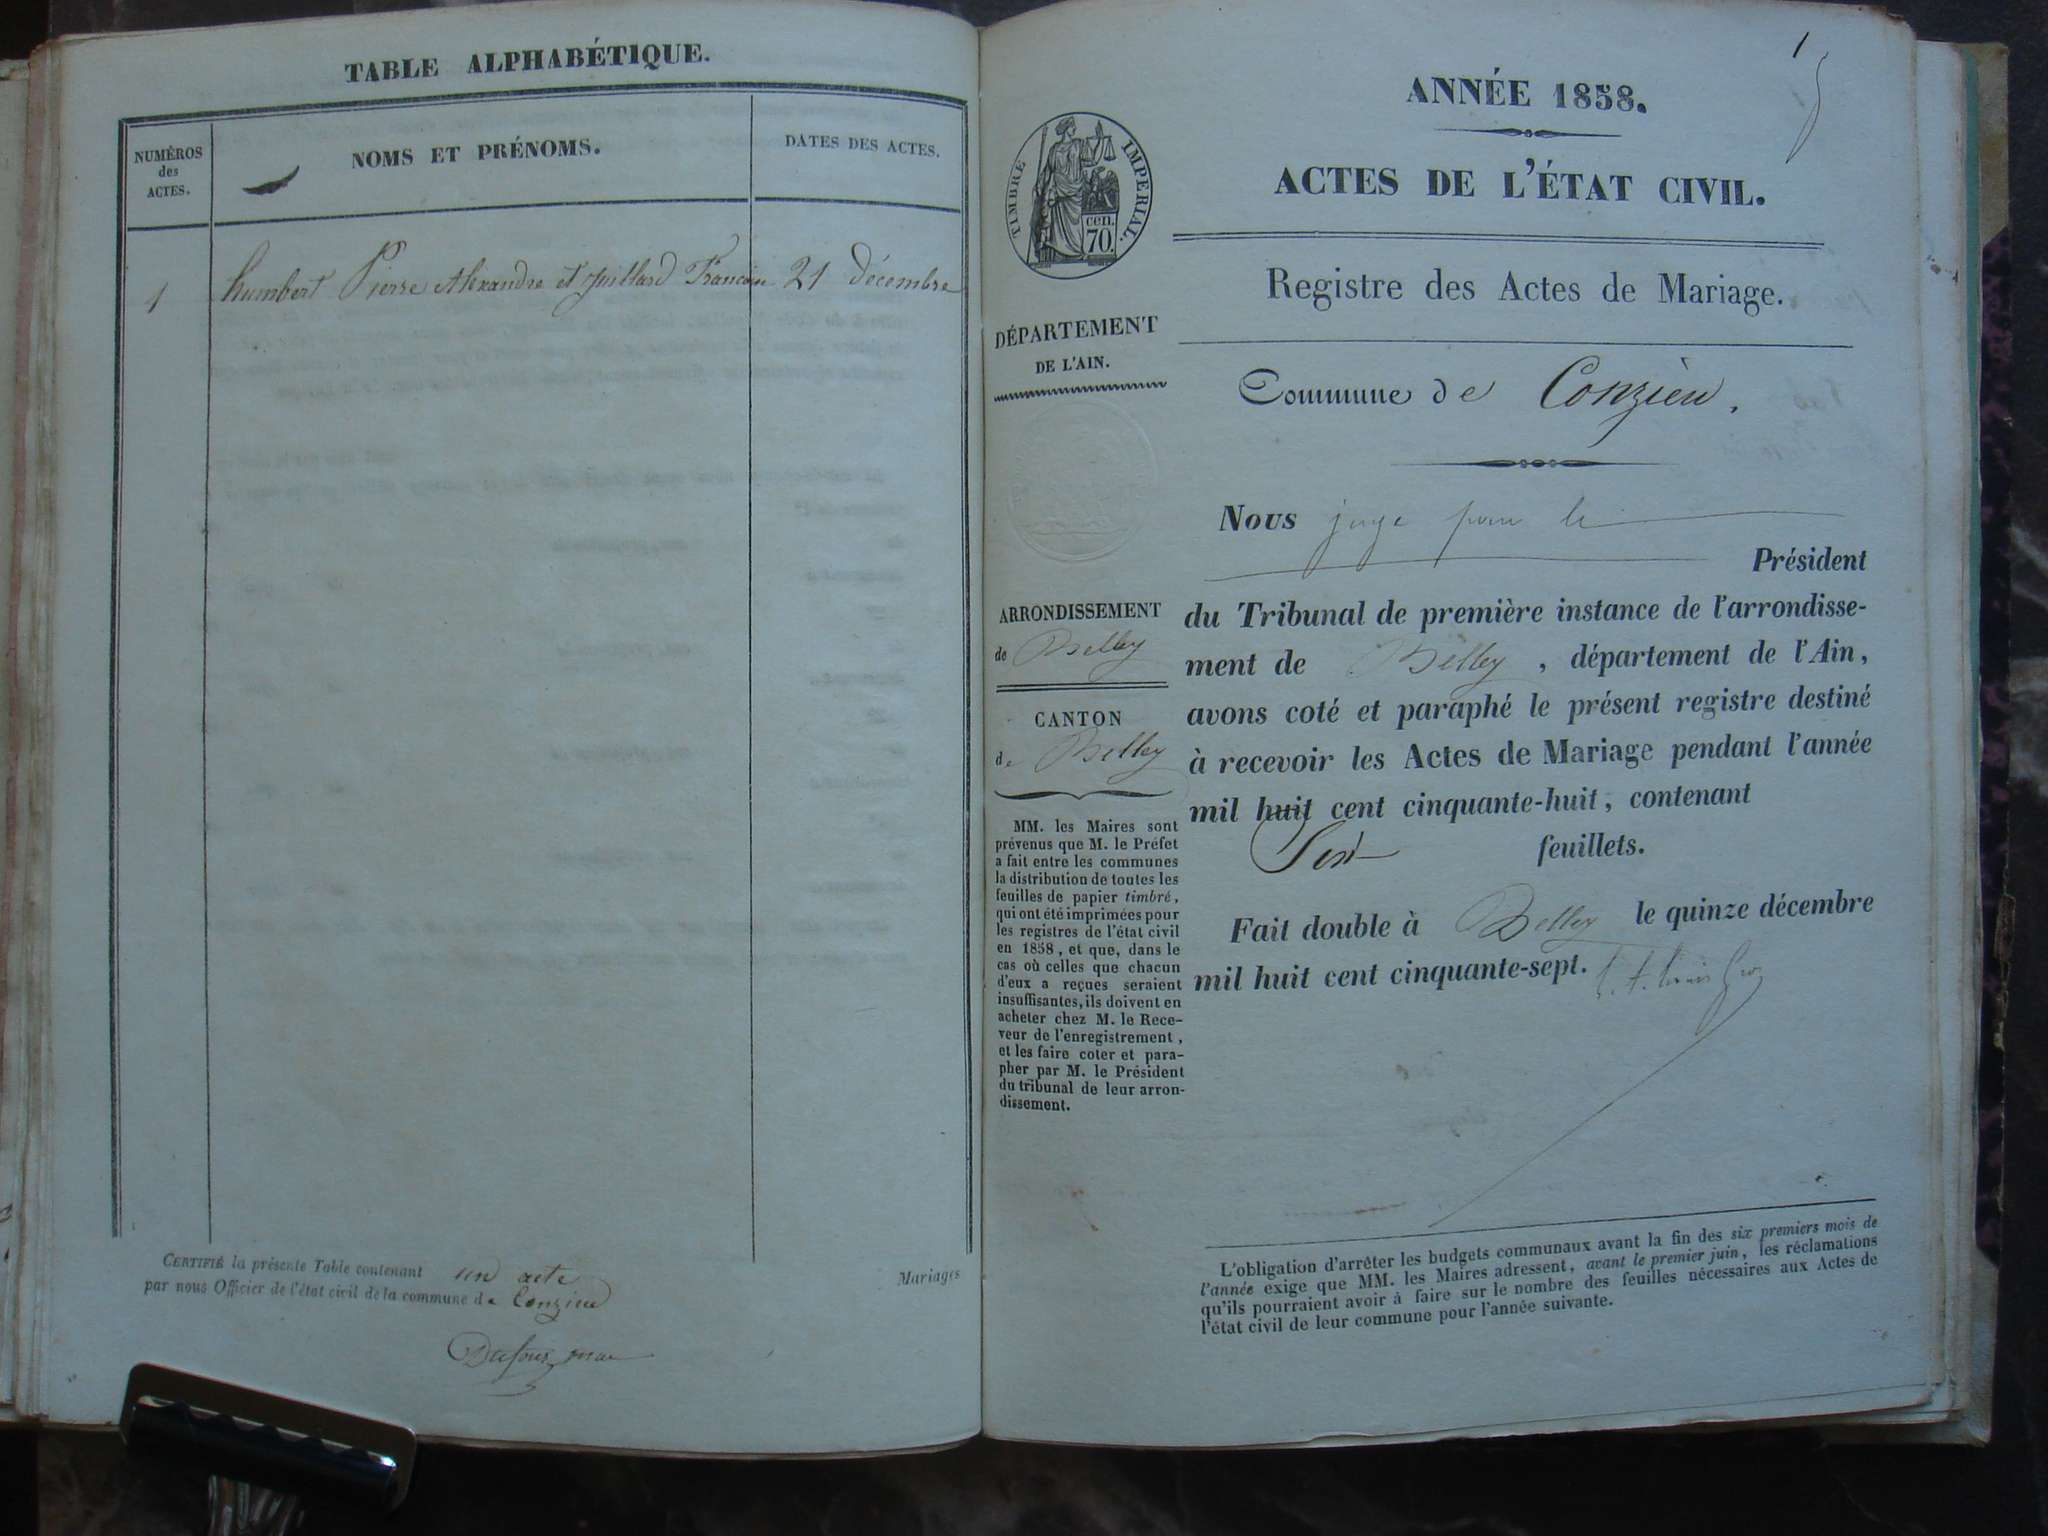 TABLE ALPHABÉTIQUE.
NUMÉROS
des
ACTES.
NOMS ET PRÉNOMS.
DATES DES ACTES.
1 humbert Pierre Alexandre et juillard Francoise 21 décembre
CERTIFIÉ la présente Table contenant un acte
par nous Officier de l'état civil de la commune de Conzieu
Mariages
Dufour maire
1
ANNÉE 1858.
ACTES DE L'ÉTAT CIVIL.
TIMBRE IMPERIAL.
cen.
70.
Registre des Actes de Mariage.
DÉPARTEMENT
DE L'AIN.
Commune de Conzieu.
Nous juge pour le
Président
du Tribunal de première instance de l'arrondisse-
ment de Belley, département de l'Ain,
avons coté et paraphé le présent registre destiné
à recevoir les Actes de Mariage pendant l'année
mil huit cent cinquante-huit, contenant
Six feuillets.
Fait double à Belley le quinze décembre
mil huit cent cinquante-sept.
ARRONDISSEMENT
de Belley
CANTON
de Belley
MM. les Maires sont
prévenus que M. le Préfet
a fait entre les communes
la distribution de toutes les
feuilles de papier timbré,
qui ont été imprimées pour
les registres de l'état civil
en 1858, et que, dans le
cas où celles que chacun
d'eux a reçues seraient
insuffisantes, ils doivent en
acheter chez M. le Rece-
veur de l'enregistrement,
et les faire coter et para-
pher par M. le Président
du tribunal de leur arron-
dissement.
L'obligation d'arrêter les budgets communaux avant la fin des six premiers mois de
l'année exige que MM. les Maires adressent, avant le premier juin, les réclamations
qu'ils pourraient avoir à faire sur le nombre des feuilles nécessaires aux Actes de
l'état civil de leur commune pour l'année suivante.